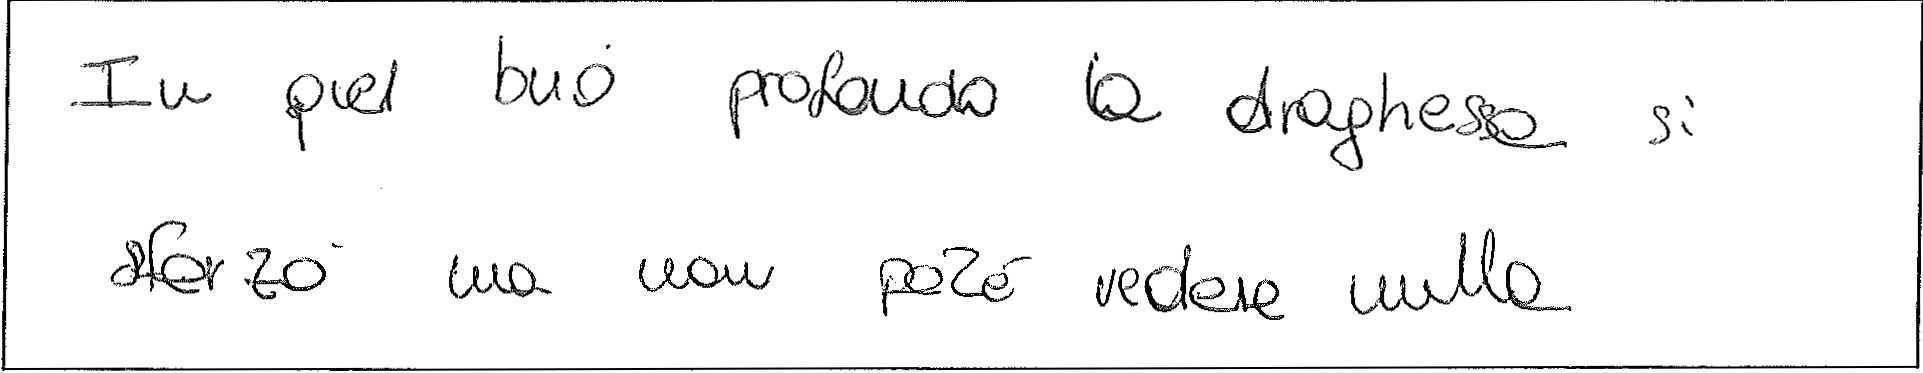 In quel buio profondo la draghessa si
sferzò ma non poté vedere nulla